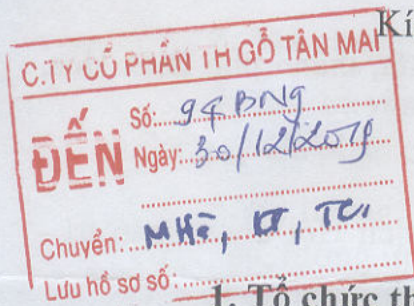 Kí
C.TY CỔ PHẦN TH GỖ TÂN MAI
ĐẾN
Số: 94 BNg
Ngày: 30/12/2019
Chuyển: MHà, KT, TC,
Lưu hồ sơ số:
1. Tổ chức th